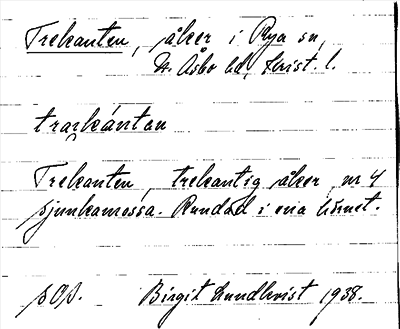 Trekanten, åker i Rya sn,
N. Åsbo hd, Krist. l.
trækánten
Trekanten, trekantig åker, nr 4
Sjunkamossa. Rundad i ena hörnet.
SOS. Birgit Lundkvist 1938.